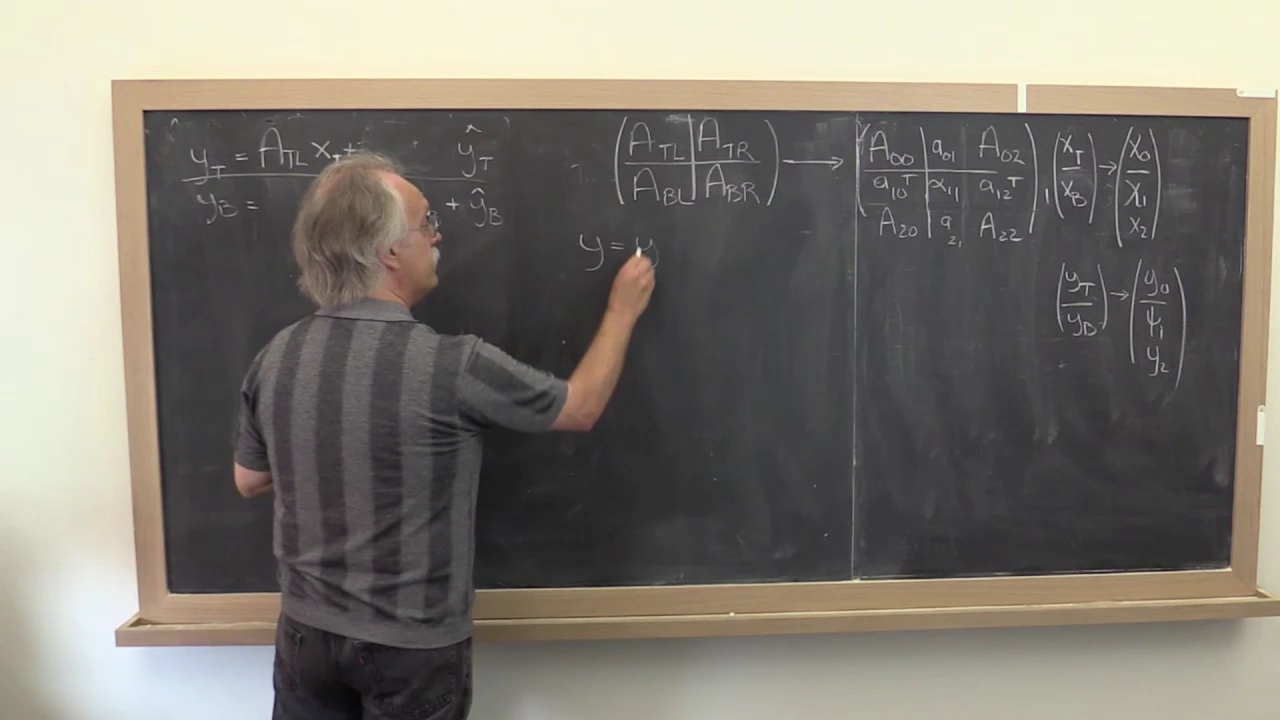 y_T = A_TL x_T + ŷ_T
y_B = + ŷ_B
( A_TL | A_TR )
( A_BL | A_BR ) →
( A_00 | a_01 | A_02 )
( a_10^T | α_11 | a_12^T )
( A_20 | a_21 | A_22 ) ,
( x_T / x_B ) → ( x_0 / χ_1 / x_2 )
y = y
( y_T / y_B ) → ( y_0 / ψ_1 / y_2 )